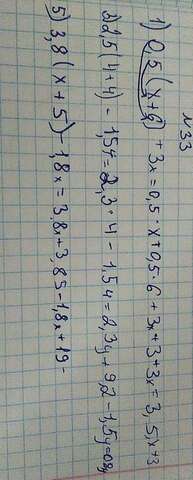 №33
1) 0,5(x+6) + 3x = 0,5·x+0,5·6+3x+3+3x=3,5x+3
2) 2,5(4+4) - 1,54=2,3·4-1,54=2,3y+9,2-1,5y=0,8y
5) 3,8(x+5)-1,8x=3,8x+3,85-1,8x+19-